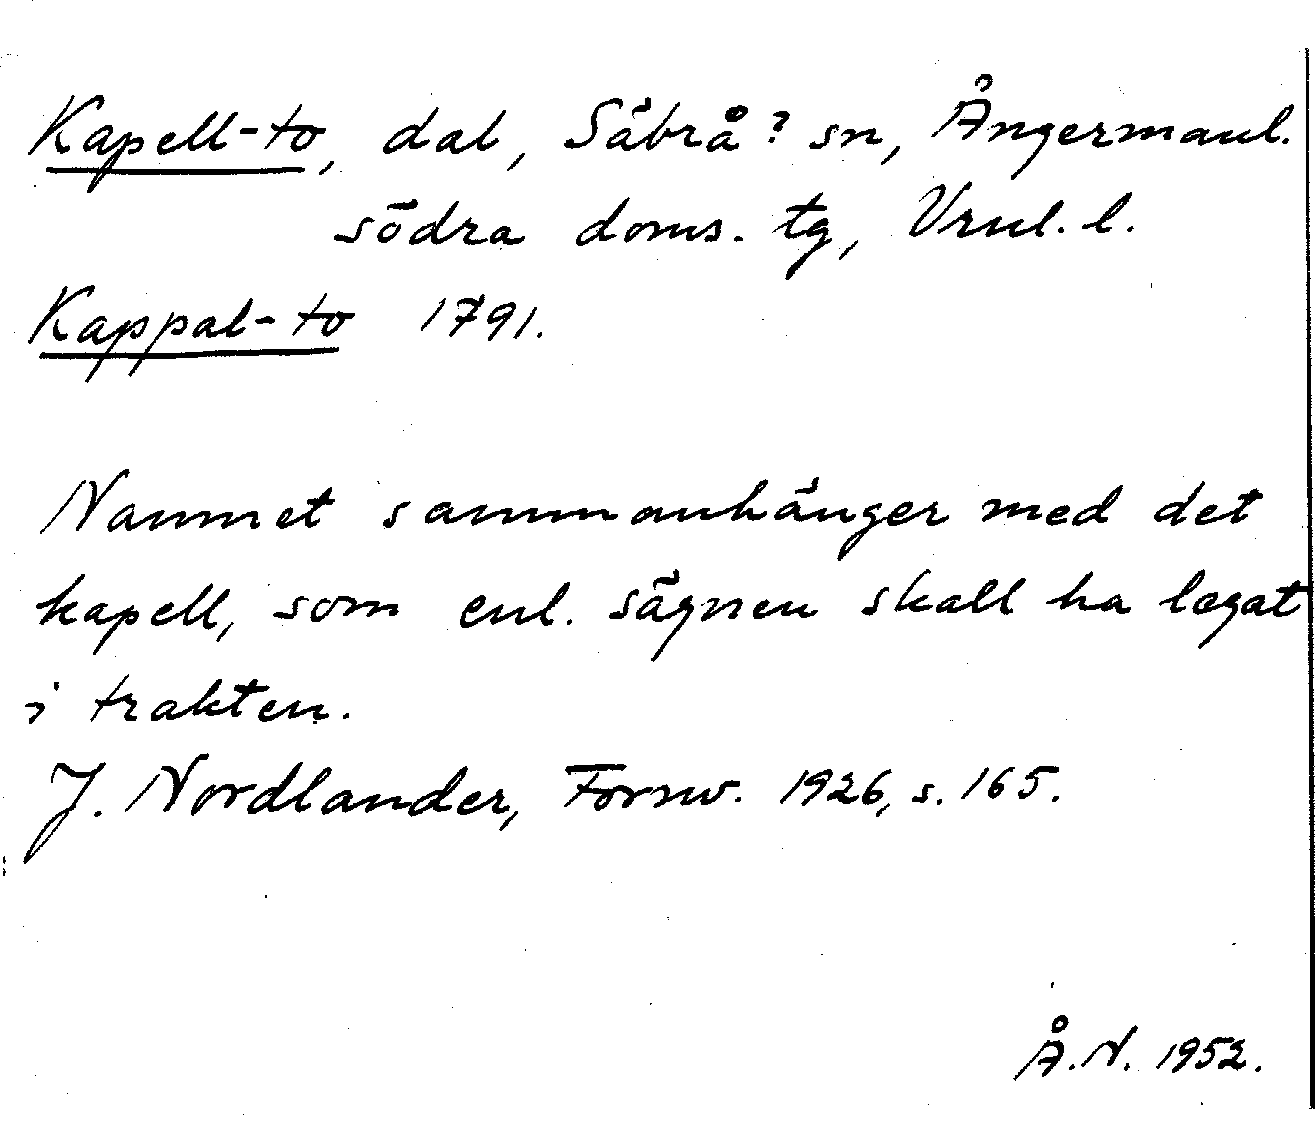 Kapell-to, dal, Säbrå? sn, Ångermanl.
södra doms. tg, Vrnl. l.
Kappal-to 1791.
Namnet sammanhänger med det
kapell, som enl. sägnen skall ha legat
i trakten.
J. Nordlander, Fornv. 1926, s. 165.
Å.N. 1952.